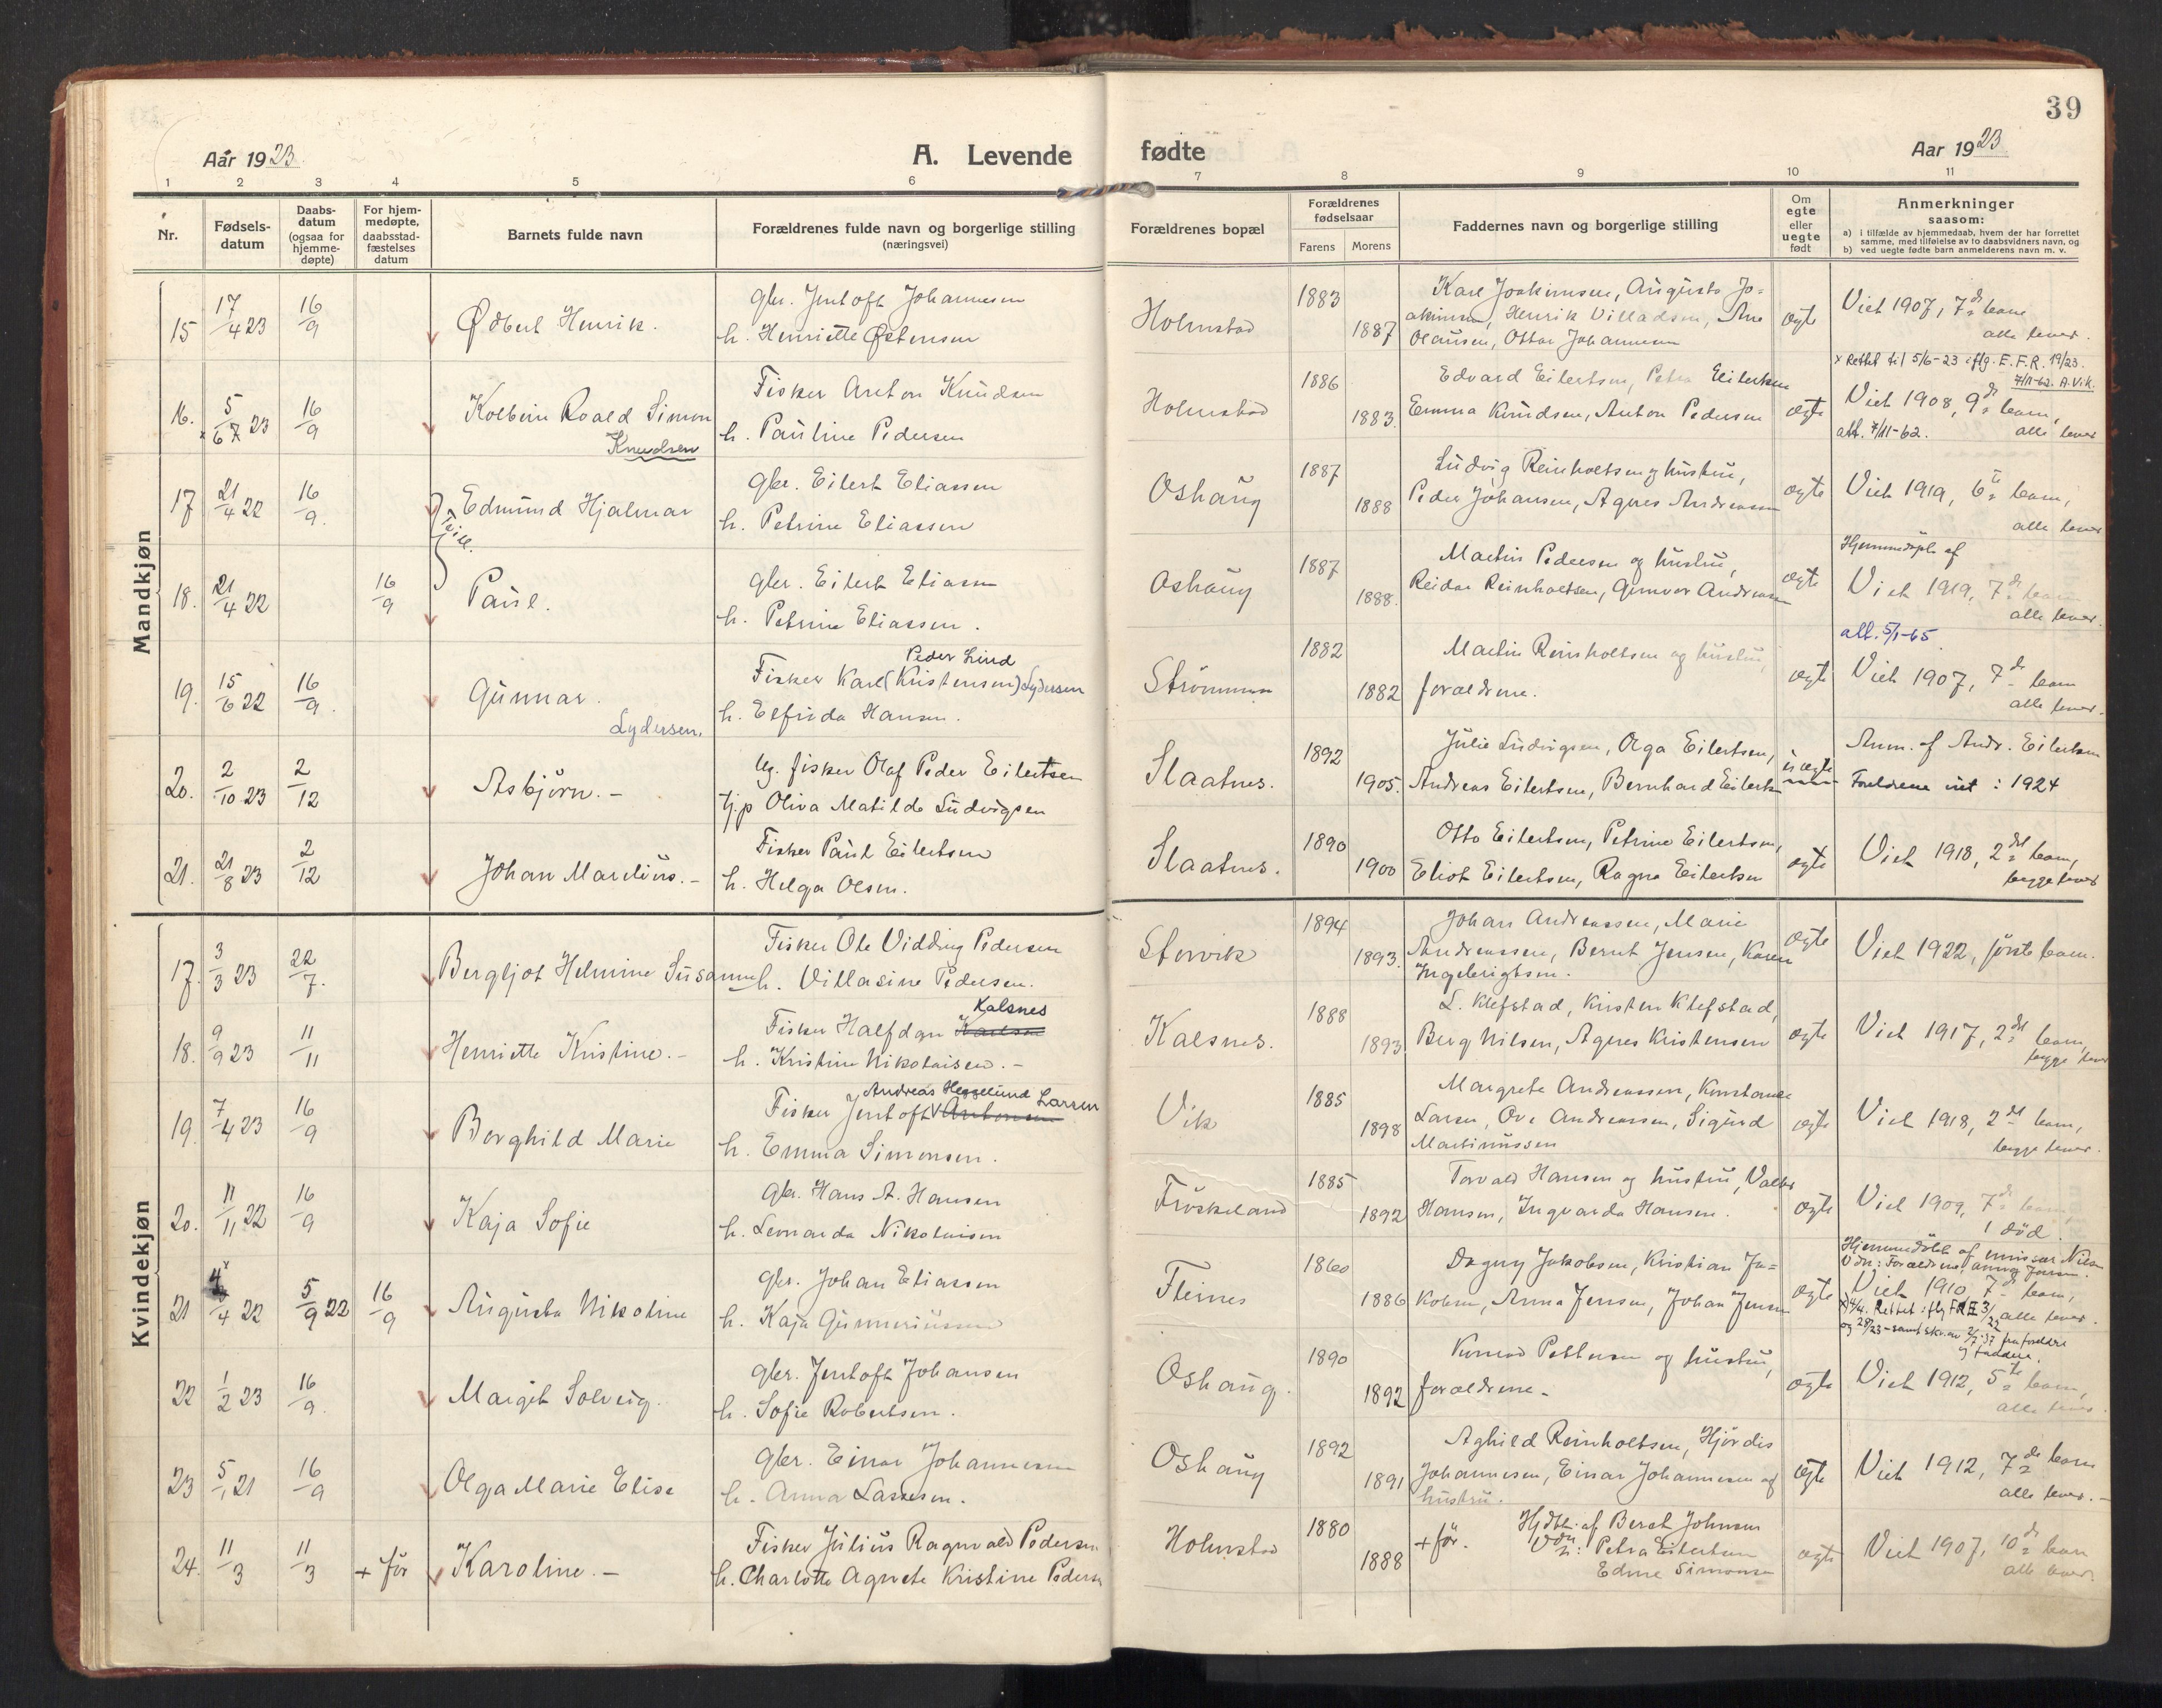 39
Aar 1923
A. Levende fødte
Aar 1923
1 2 3 4 5 6 7 8 9 10 11
Nr.
Fødsels-
datum
Daabs-
datum
(ogsaa for
hjemme-
døpte)
For hjem-
medøpte,
daabsstad-
fæstelses
datum
Barnets fulde navn
Forældrenes fulde navn og borgerlige stilling
(næringsvei)
Forældrenes bopæl
Forældrenes
fødselsaar
Farens Morens
Faddernes navn og borgerlige stilling
Om
egte
eller
uegte
født
Anmerkninger
saasom:
a) i tilfælde av hjemmedaab, hvem der har forrettet
samme, med tilføielse av to daabsvidners navn, og
b) ved uegte fødte barn anmelderens navn m. v.
Mandkjøn
15 17/4 23 16/9 Ødbert Henrik. gbr. Jentoft Johannesen
h. Henriette Østensen
Holmstad 1883 1887
Karl Joakimsen, Augusta Jo-
akimsen, Henrik Villadsen, Ane
Olausen, Ottar Johannesen
egte
Viet 1907, 7de barn
alle lever.
16. 5/6 7 23 16/9 Kolbein Roald Simon
Knudsen
Fisker Anton Knudsen
h. Pauline Pedersen
Holmstad 1886 1883.
Edvard Eilertsen, Petra Eilertsen
Emma Knudsen, Anton Pedersen
egte
x Rettet til 5/6-23 iflg. E.F.R. 19/23.
7/11-62. A.Vik.
Viet 1908, 9de barn,
att. 7/11-62. alle lever
17 21/4 22 16/9. Edmund Hjalmar
gbr. Eilert Eliassen
h. Petrine Eliassen
Oshaug 1887 1888
Ludvig Reinholtsen og hustru,
Peder Johansen, Agnes Andreassen
egte
Viet 1919, 6te barn,
alle lever
18. 21/4 22 16/9 Paul.
gbr. Eilert Eliassen
h. Petrine Eliassen.
Oshaug 1887 1888.
Martin Pedersen og hustru,
Reidar Reinholtsen, Gunvor Andreassen
egte
Hjemmedøpt af
Viet 1919, 7de barn
alle lever.
19. 15/6 22 16/9. Gunnar.
Lydersen.
Peder Lind
Fisker Karl (Kristensen) Lydersen
h. Elfrida Hansen.
Strømmen 1882 1882
Martin Reinholtsen og hustru,
forældrene.
egte
att. 5/1-65
Viet 1907, 7de barn
alle lever.
20. 2/10 23 2/12 Asbjørn.-
Ug. fisker Olaf Peder Eilertsen
tj.p Oliva Matilde Ludvigsen
Slaatnes. 1892 1905.
Julie Ludvigsen, Olga Eilertsen,
Andreas Eilertsen, Bernhard Eilertsen
uegte
Anm. af Andr. Eilertsen
Foreldrene viet : 1924
21. 21/8 23 2/12 Johan Marelius.-
Fisker Paul Eilertsen
h. Helga Olsen.
Slaatnes. 1890 1900
Otto Eilertsen, Petrine Eilertsen,
Eliot Eilertsen, Ragna Eilertsen
egte
Viet 1918, 2det barn,
begge lever
Kvindekjøn
17. 3/3 23 22/7. Bergljot Helmine Susanne
Fisker Ole Vidding Pedersen
h. Villasine Pedersen.
Stervik 1894 1893.
Johan Andreassen, Marie
Andreassen, Bernt Jensen, Karen
Ingebrigtsen.
egte
Viet 1922, første barn.
18. 9/9 23 11/11 Henriette Kristine.-
Kalsnes
Fisker Halfdan Karlsen
h. Kristine Nikolaisen.-
Kalsnes. 1888 1893
L. Klefstad, Kristen Klefstad,
Berg Nilsen, Agnes Kristensen
egte
Viet 1917, 2det barn,
begge lever
19. 7/4 23 16/9 Borghild Marie
Andreas Heggelund Larsen
Fisker Jentoft Antonsen
h. Emma Simonsen.
Vik 1885 1898
Margrete Andreassen, Konstanse
Larsen, Ove Andreassen, Sigurd
Martinussen
egte
Viet 1918, 2det barn,
begge lever.
20. 11/11 22 16/9 Kaja Sofie
gbr. Hans A. Hansen
h. Leonarda Nikolaisen
Frøskeland 1885 1892
Torvald Hansen og hustru, Valbor
Hansen, Ingvarda Hansen.
egte
Viet 1909, 7de barn,
1 død.
21 4x/4 22 5/9 22 16/9 Augusta Nikoline
gbr. Johan Eliassen
h. Kaja Gunneriussen
Fleines 1860 1886
Dagny Jakobsen, Kristian Ja-
kobsen, Anna Jensen, Johan Jensen
egte
Hjemmedøbt af emissær Nilsen
Vdn: Forældrene, Anna Jensen.
Viet 1910, 7de barn,
x) 4/4. Rettet iflg F.R.E 3/22 alle lever.
og 28/23 - samt skr. av 2/7-37 fra foreldre
og faddere.
22 1/2 23 16/9. Margit Solveig.
gbr. Jentoft Johansen
h. Sofie Robertsen.
Oshaug. 1890 1892
Konrad Pettersen og hustru,
forældrene.
egte
Viet 1912, 5te barn,
alle lever.
23 5/1 21 16/9 Olga Marie Elise
gbr. Einar Johannesen
h. Anna Larsen.
Oshaug 1892 1891
Aghild Reinholtsen, Hjørdis
Johannesen, Einar Johannesen og
hustru.
egte
Viet 1912, 7de barn
alle lever.-
24. 11/3 11/3 + før Karoline.-
Fisker Julius Ragnvald Pedersen
h. Charlotte Agnete Kristine Pedersen
Holmstad 1880 1888
+ før. Hjdbt. af Beret Johnsen
Vdn: Petra Eilertsen
Edine Simonsen
egte
Viet 1907, 10de barn
alle lever.